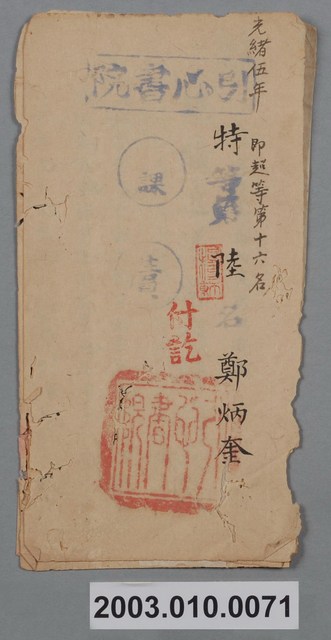 光緒伍年 即超等第十六名
引心書院
特等第陸名 鄭炳奎
課
付訖
2003.010.0071